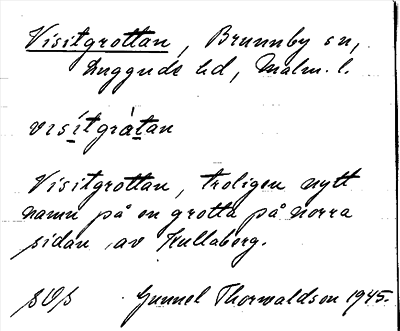 Visitgrottan, Brunnby sn,
Luggude hd, Malm. l.
visítgråtan
Visitgrottan, troligen nytt
namn på en grotta på norra
sidan av Kullaberg.
Gunnel Thorwaldson 1945.